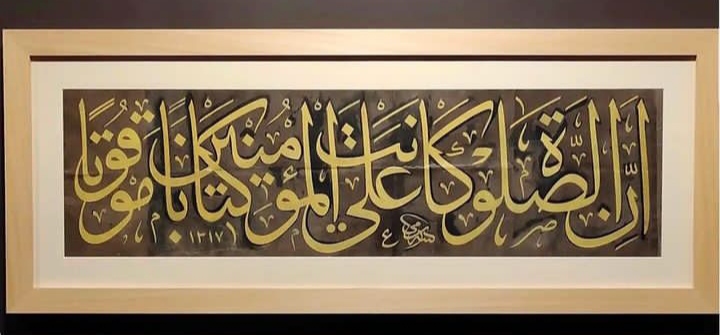 اِنَّ الصَّلٰوةَ كَانَتْ عَلَي الْمُؤْمِنِينَ كِتَابًا مَوْقُوتًا
١٣١٧